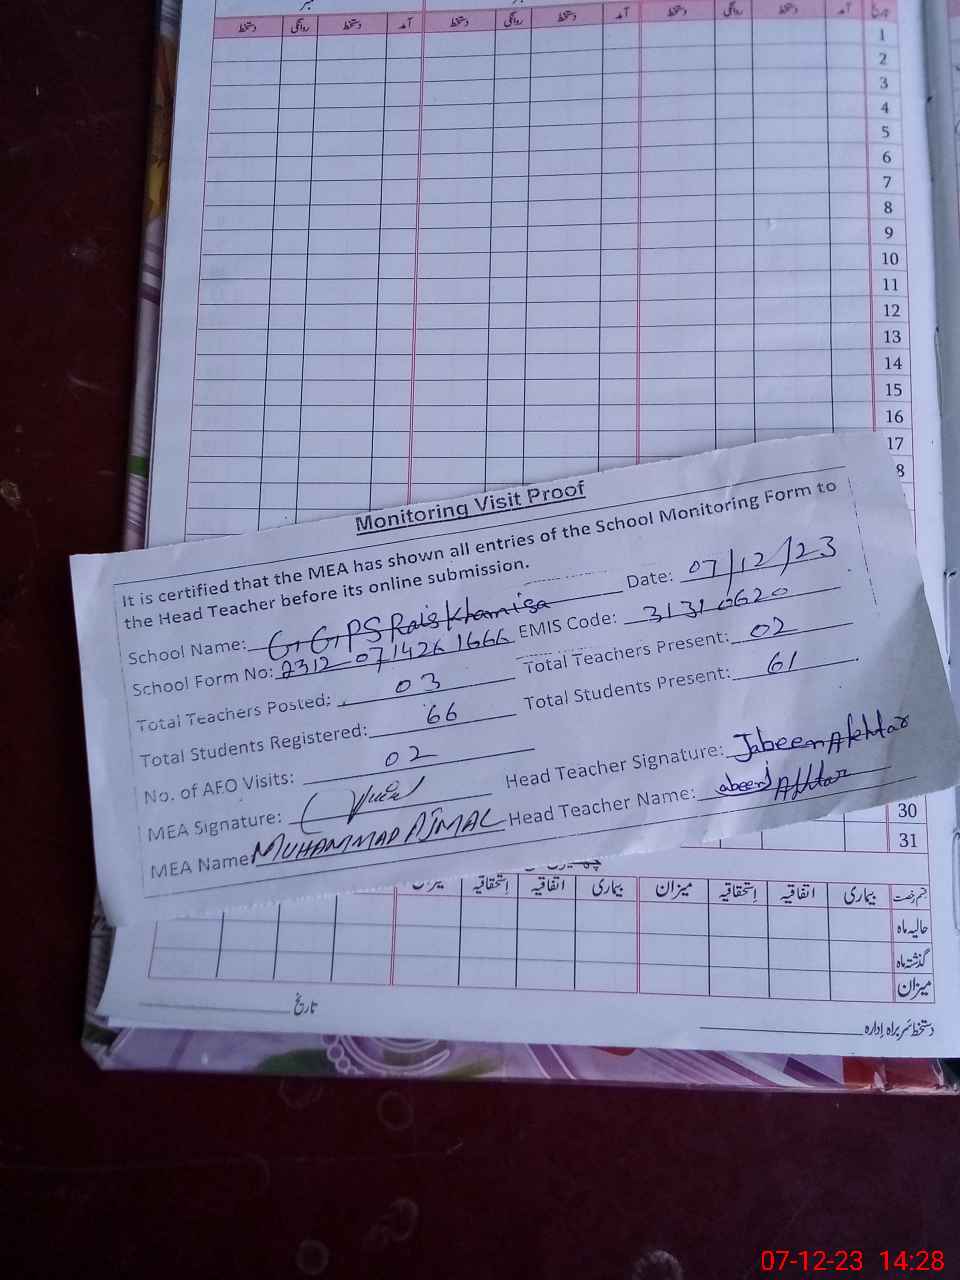 دستخط روانگی دستخط آمد دستخط روانگی دستخط آمد دستخط روانگی دستخط آمد تاریخ
1
2
3
4
5
6
7
8
9
10
11
12
13
14
15
16
17
8
Monitoring Visit Proof
It is certified that the MEA has shown all entries of the School Monitoring Form to
the Head Teacher before its online submission.
School Name: G.G.P.S Rais Khamisa Date: 07/12/23
School Form No: 2312 07 1426 1666 EMIS Code: 31310620
Total Teachers Posted: 03 Total Teachers Present: 02
Total Students Registered: 66 Total Students Present: 61
No. of AFO Visits: 02
MEA Signature: Head Teacher Signature: Jabeen Akhtar
MEA Name MUHAMMAD AJMAL Head Teacher Name: Jabeen Akhtar
30
31
میزان اِستحقاقیہ اتفاقیہ بیماری میزان اِستحقاقیہ اتفاقیہ بیماری قسم رخصت
حالیہ ماہ
گذشتہ ماہ
میزان
تاریخ
دستخط سربراہ ادارہ
07-12-23 14:28